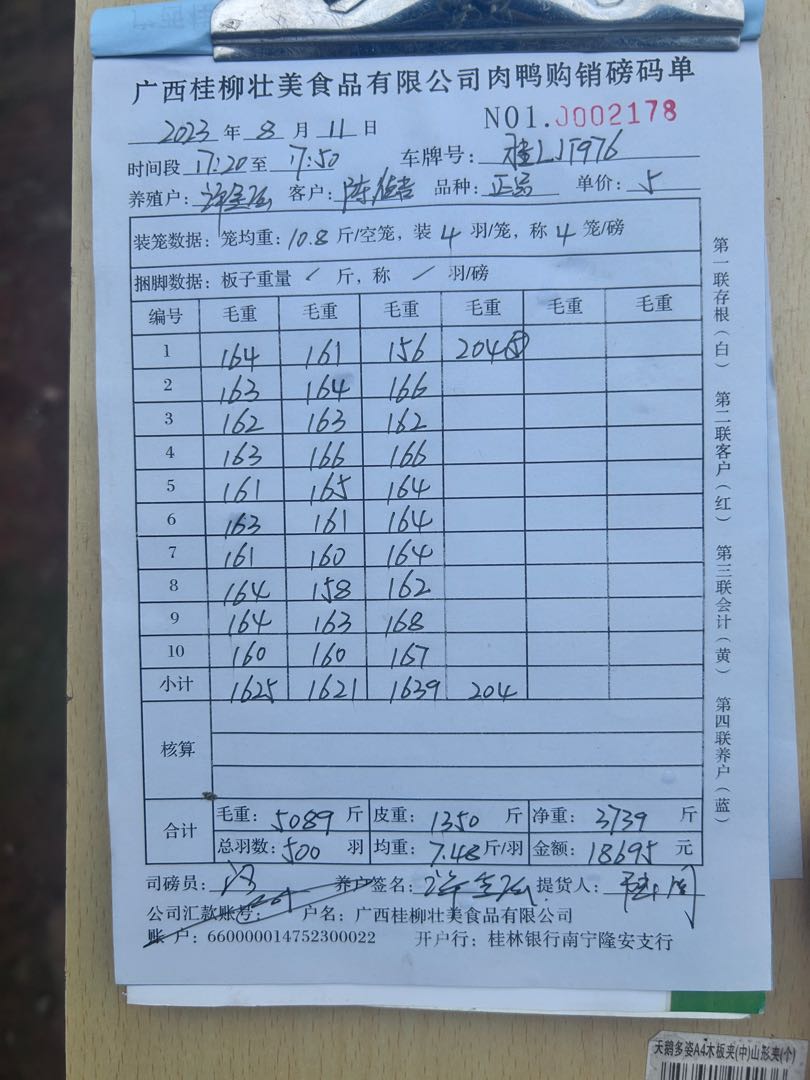 广西桂柳壮美食品有限公司肉鸭购销磅码单
2023 年 8 月 11 日 NO1.0002178
时间段 17:20 至 17:50 车牌号: 桂LJT976
养殖户: 客户: 陈 品种: 正品 单价: 5
装笼数据: 笼均重: 10.8 斤/空笼, 装 4 羽/笼, 称 4 笼/磅
捆脚数据: 板子重量 / 斤, 称 / 羽/磅
编号 毛重 毛重 毛重 毛重 毛重 毛重
1 164 161 156 204⑤
2 163 164 166
3 162 163 162
4 163 166 166
5 161 165 164
6 163 161 164
7 161 160 164
8 164 158 162
9 164 163 168
10 160 160 167
小计 1625 1621 1639 204
核算
合计 毛重: 5089 斤 皮重: 1350 斤 净重: 3739 斤
总羽数: 500 羽 均重: 7.48 斤/羽 金额: 18695 元
司磅员: 养户签名: 提货人:
公司汇款账号: 户名: 广西桂柳壮美食品有限公司
账 户: 660000014752300022 开户行: 桂林银行南宁隆安支行
第一联存根(白) 第二联客户(红) 第三联会计(黄) 第四联养户(蓝)
天鹅多姿A4木板夹(中)山形夹(个)